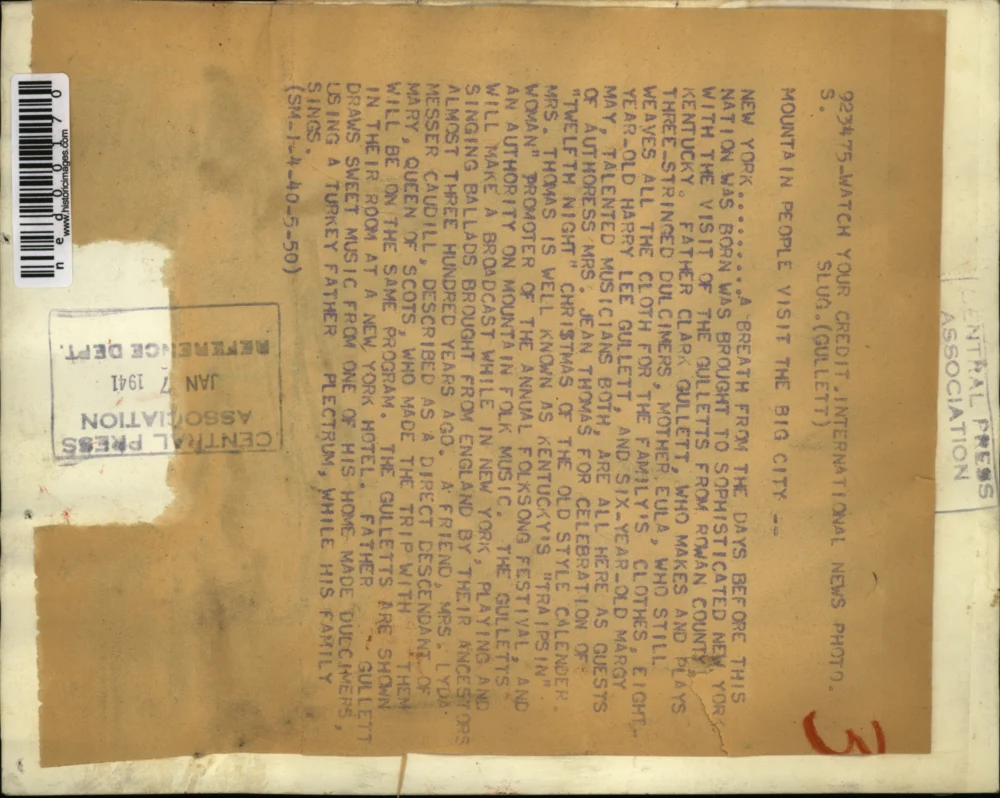 923475-WATCH YOUR CREDIT.INTERNATIONAL NEWS PHOTO.
S. SLUG.(GULLETT)
MOUNTAIN PEOPLE VISIT THE BIG CITY --
NEW YORK.........A BREATH FROM THE DAYS BEFORE THIS
NATION WAS BORN WAS BROUGHT TO SOPHISTICATED NEW YORK
WITH THE VISIT OF THE GULLETTS FROM ROWAN COUNTY,
KENTUCKY. FATHER CLARK GULLETT, WHO MAKES AND PLAYS
THREE-STRINGED DULCIMERS, MOTHER EULA, WHO STILL
WEAVES ALL THE CLOTH FOR THE FAMILY'S CLOTHES, EIGHT-
YEAR-OLD HARRY LEE GULLETT, AND SIX-YEAR-OLD MARGY
MAY, TALENTED MUSICIANS BOTH, ARE ALL HERE AS GUESTS
OF AUTHORESS MRS. JEAN THOMAS FOR CELEBRATION OF
"TWELFTH NIGHT" CHRISTMAS OF THE OLD STYLE CALENDER.
MRS. THOMAS IS WELL KNOWN AS KENTUCKY'S "TRAIPSIN'
WOMAN" PROMOTER OF THE ANNUAL FOLKSONG FESTIVAL, AND
AN AUTHORITY ON MOUNTAIN FOLK MUSIC. THE GULLETTS
WILL MAKE A BROADCAST WHILE IN NEW YORK, PLAYING AND
SINGING BALLADS BROUGHT FROM ENGLAND BY THEIR ANCESTORS
ALMOST THREE HUNDRED YEARS AGO. A FRIEND, MRS. LYDA
MESSER CAUDILL, DESCRIBED AS A DIRECT DESCENDANT OF
MARY, QUEEN OF SCOTS, WHO MADE THE TRIP WITH THEM
WILL BE ON THE SAME PROGRAM. THE GULLETTS ARE SHOWN
IN THEIR ROOM AT A NEW YORK HOTEL. FATHER GULLETT
DRAWS SWEET MUSIC FROM ONE OF HIS HOME-MADE DULCIMERS,
USING A TURKEY FATHER PLECTRUM, WHILE HIS FAMILY
SINGS.
(SM-1-4-40-5-50)
3
CENTRAL PRESS
ASSOCIATION
CENTRAL PRESS
ASSOCIATION
JAN 7 1941
REFERENCE DEPT.
www.historicimages.com